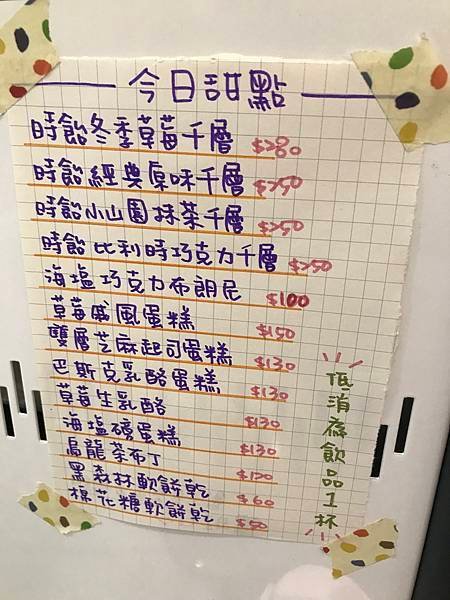 今日甜點
時飴冬季草莓千層 $280
時飴經典原味千層 $250
時飴小山園抹茶千層 $250
時飴比利時巧克力千層 $250
海塩巧克力布朗尼 $100
草莓戚風蛋糕 $150
雙層芝麻起司蛋糕 $130
巴斯克乳酪蛋糕 $130
草莓生乳酪 $130
海塩磅蛋糕 $130
烏龍茶布丁 $120
黑森林軟餅乾 $60
棉花糖軟餅乾 $50
低消為飲品1杯